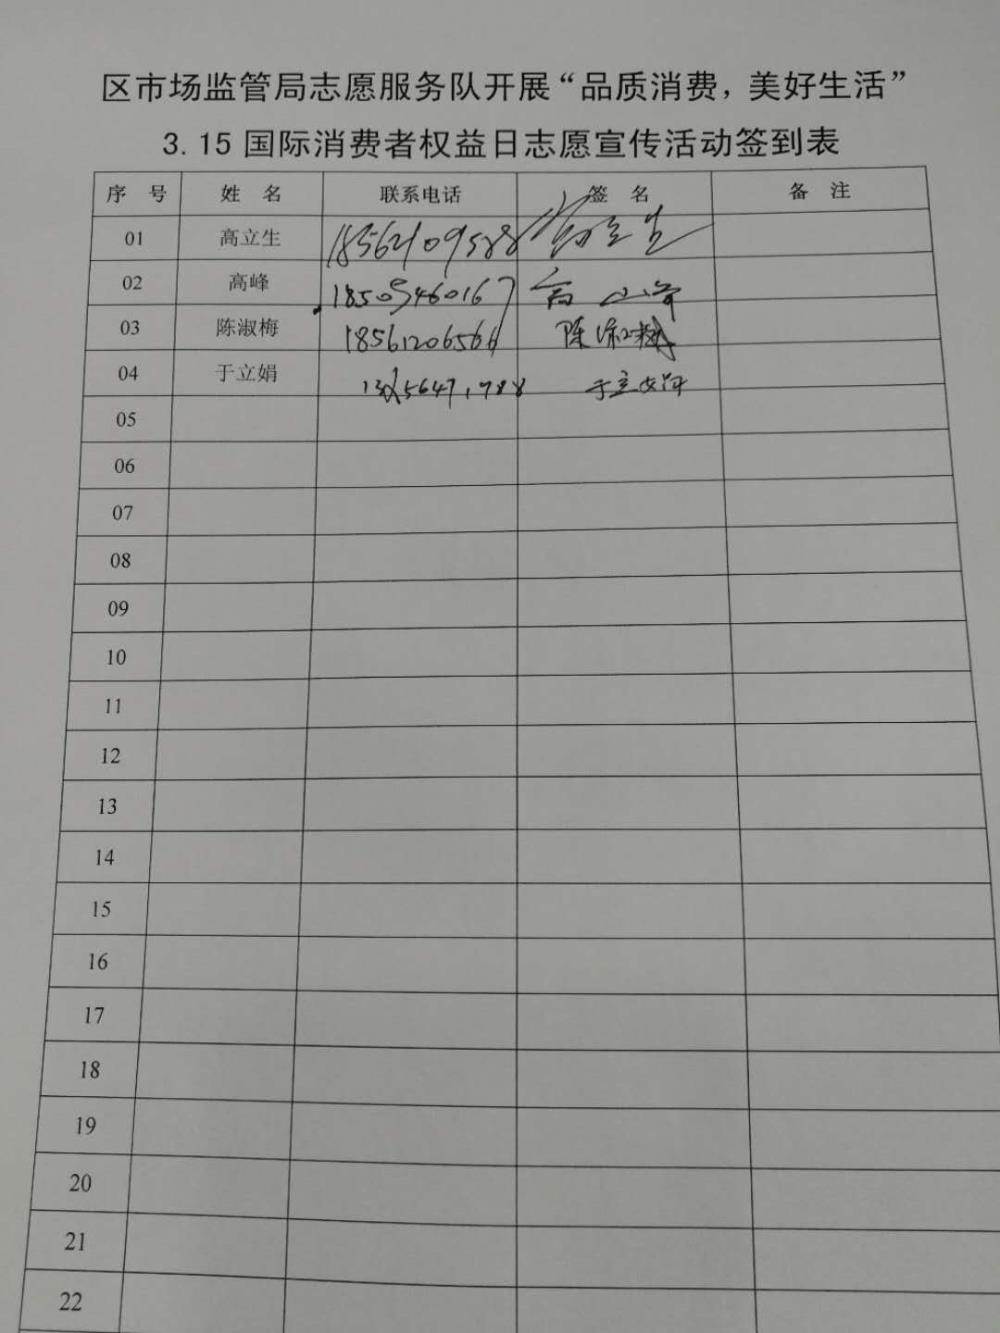 区市场监管局志愿服务队开展“品质消费，美好生活”
3.15国际消费者权益日志愿宣传活动签到表
序 号 姓 名 联系电话 签 名 备 注
01 高立生 18562109588 高立生
02 高峰 18505460167 高峰
03 陈淑梅 18561206566 陈淑梅
04 于立娟 于立娟
05
06
07
08
09
10
11
12
13
14
15
16
17
18
19
20
21
22